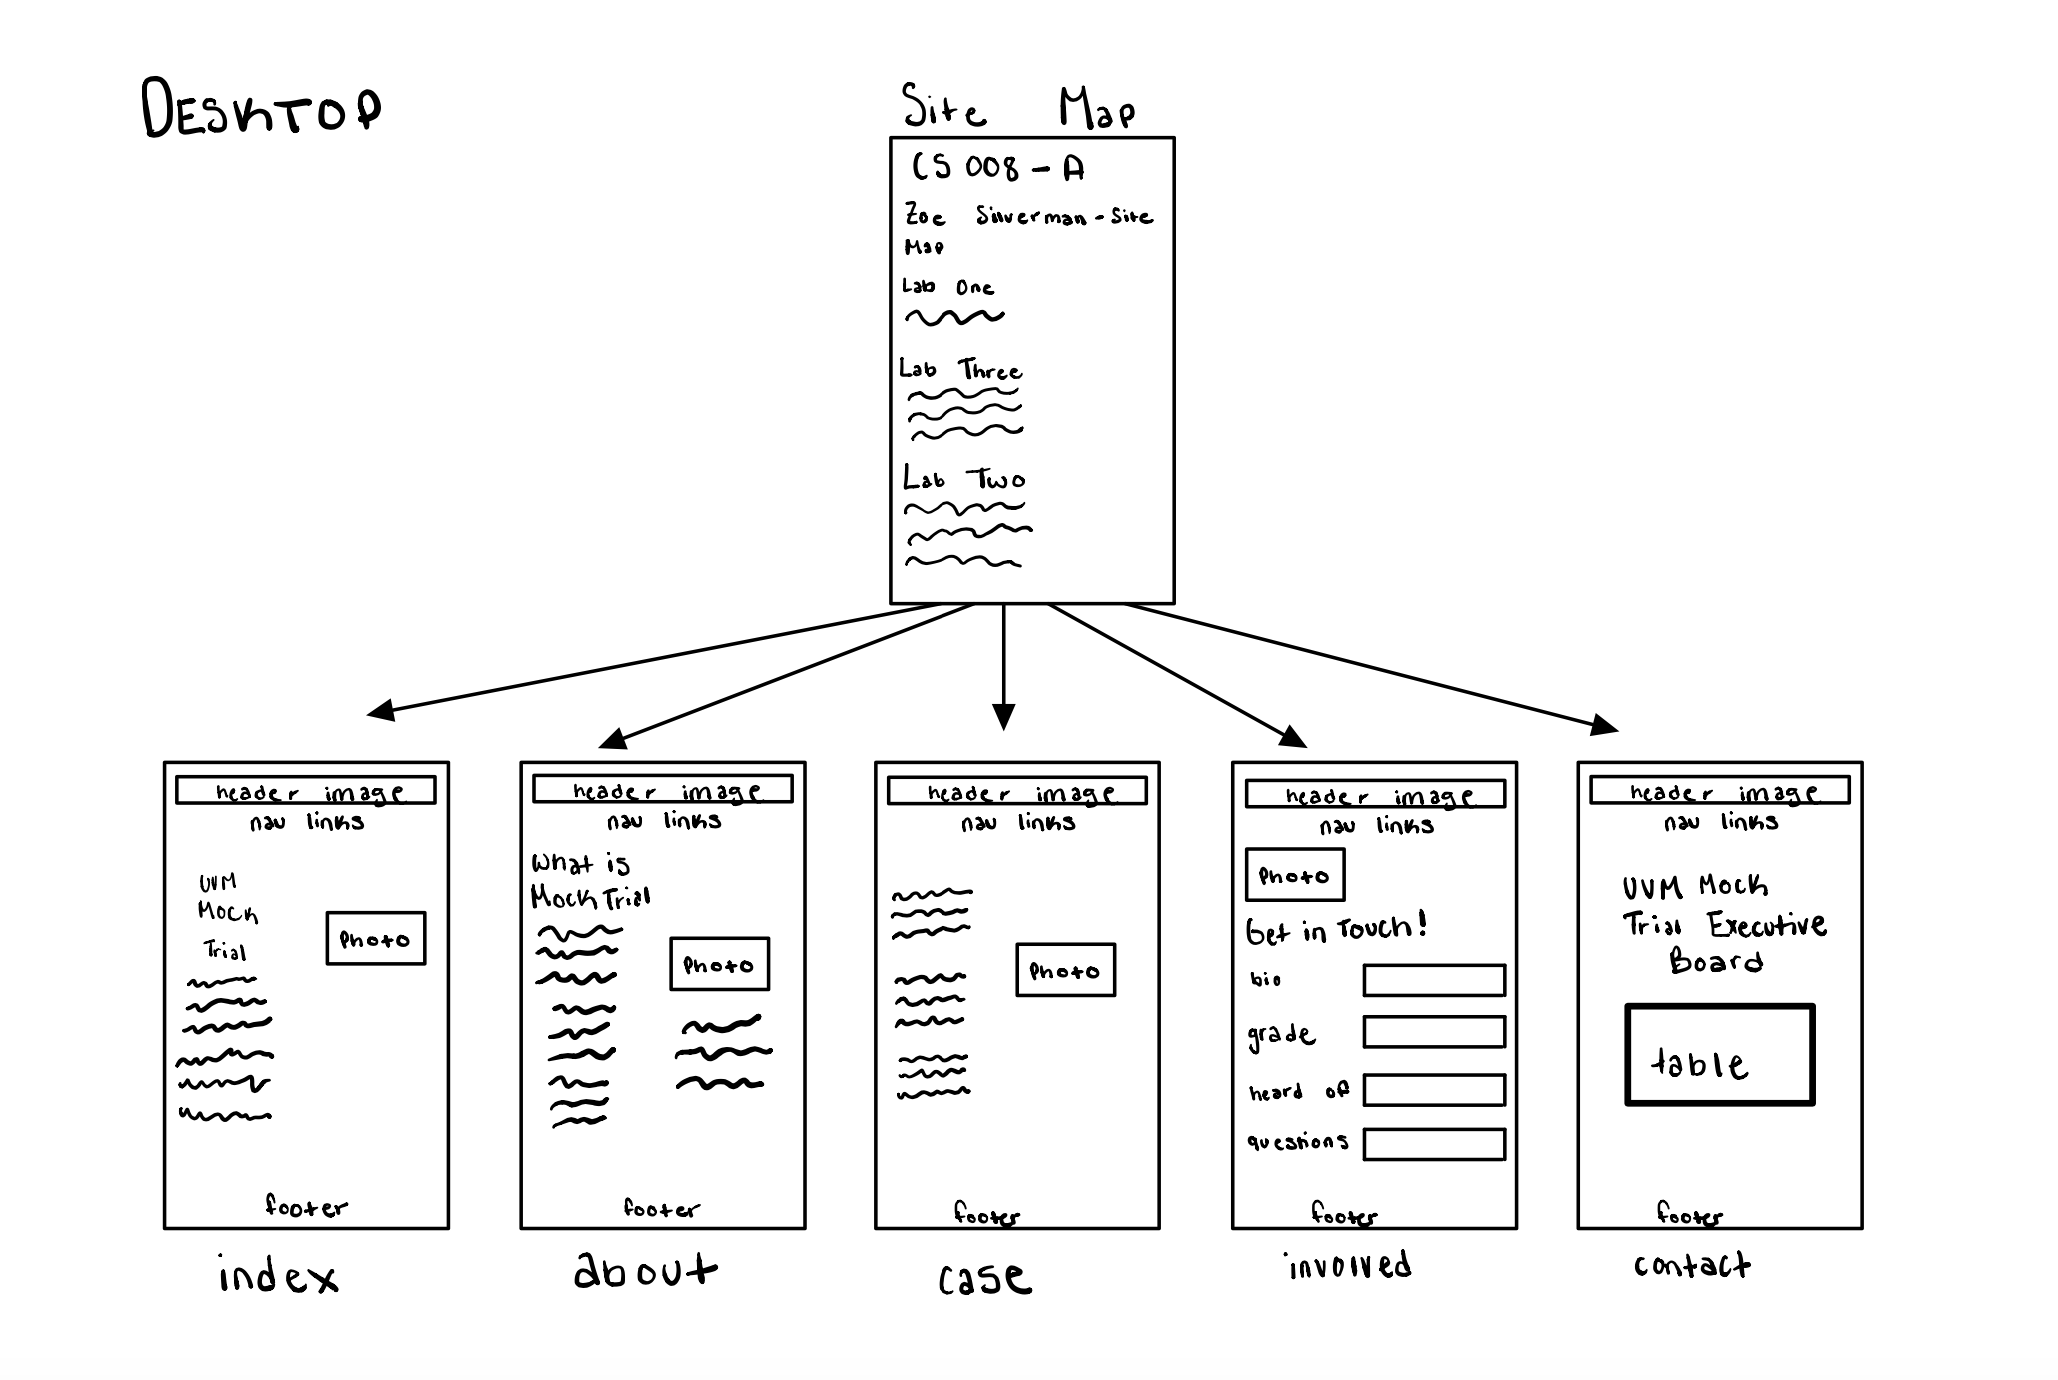 DESKTOP
Site Map
CS 008 - A
Zoe Silverman - Site
Map
Lab One
Lab Three
Lab Two
header image
nav links
UVM
Mock
Trial
Photo
footer
index
header image
nav links
What is
Mock Trial
Photo
footer
about
header image
nav links
Photo
footer
case
header image
nav links
Photo
Get in Touch!
bio
grade
heard of
questions
footer
involved
header image
nav links
UVM Mock
Trial Executive
Board
table
footer
contact